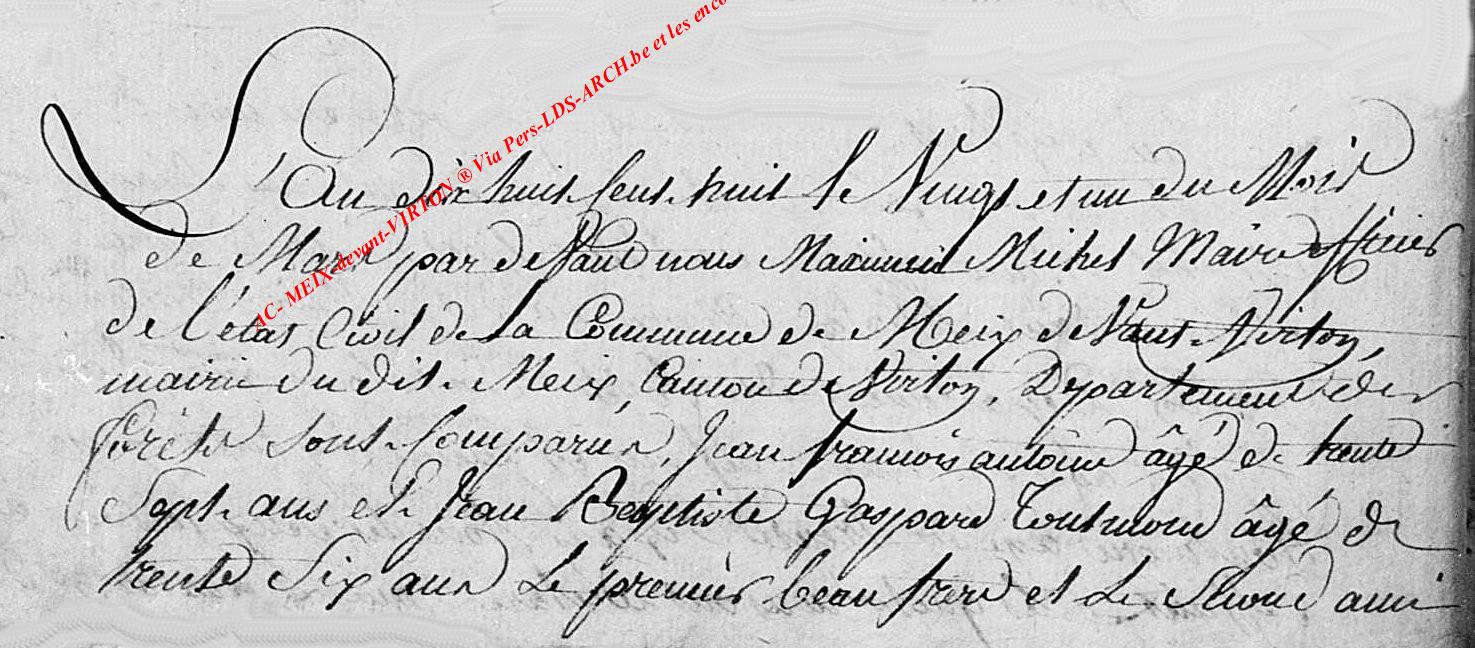 AC- MEIX-devant-VIRTON ® Via Pers-LDS-ARCH.be et les enco
L'An dix huit Cent huit le Vingt et un du Mois
de Mars par devant nous Maximin Michel Maire officier
de l'état Civil de La Commune de Meix devant Virton,
mairie du dit Meix, Canton de Virton, Departement des
forêts sont Comparus, Jean françois antoine âgé de trente
Sept ans et Jean Baptiste Gaspard âgé de
trente Six ans Le premier beau frere et Le Second ami